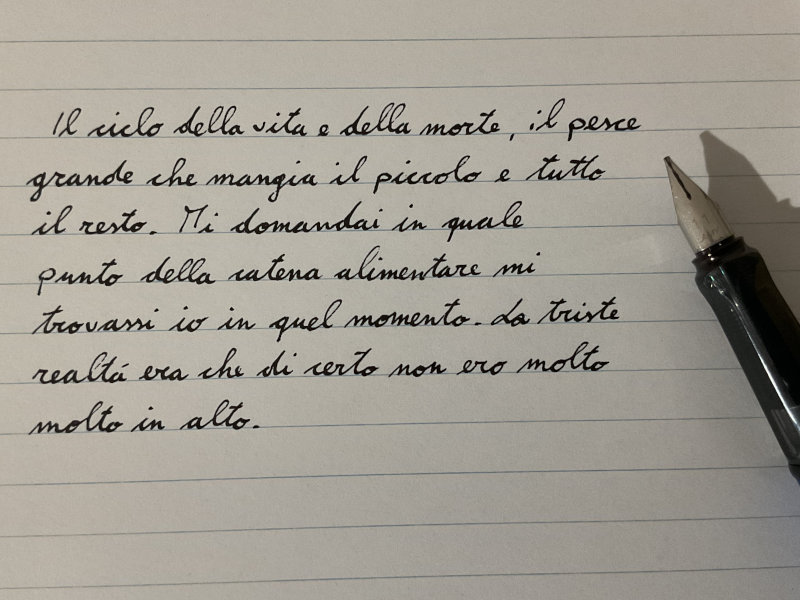 Il ciclo della vita e della morte, il pesce
grande che mangia il piccolo e tutto
il resto. Mi domandai in quale
punto della catena alimentare mi
trovassi io in quel momento. La triste
realtá era che di certo non ero molto
molto in alto.